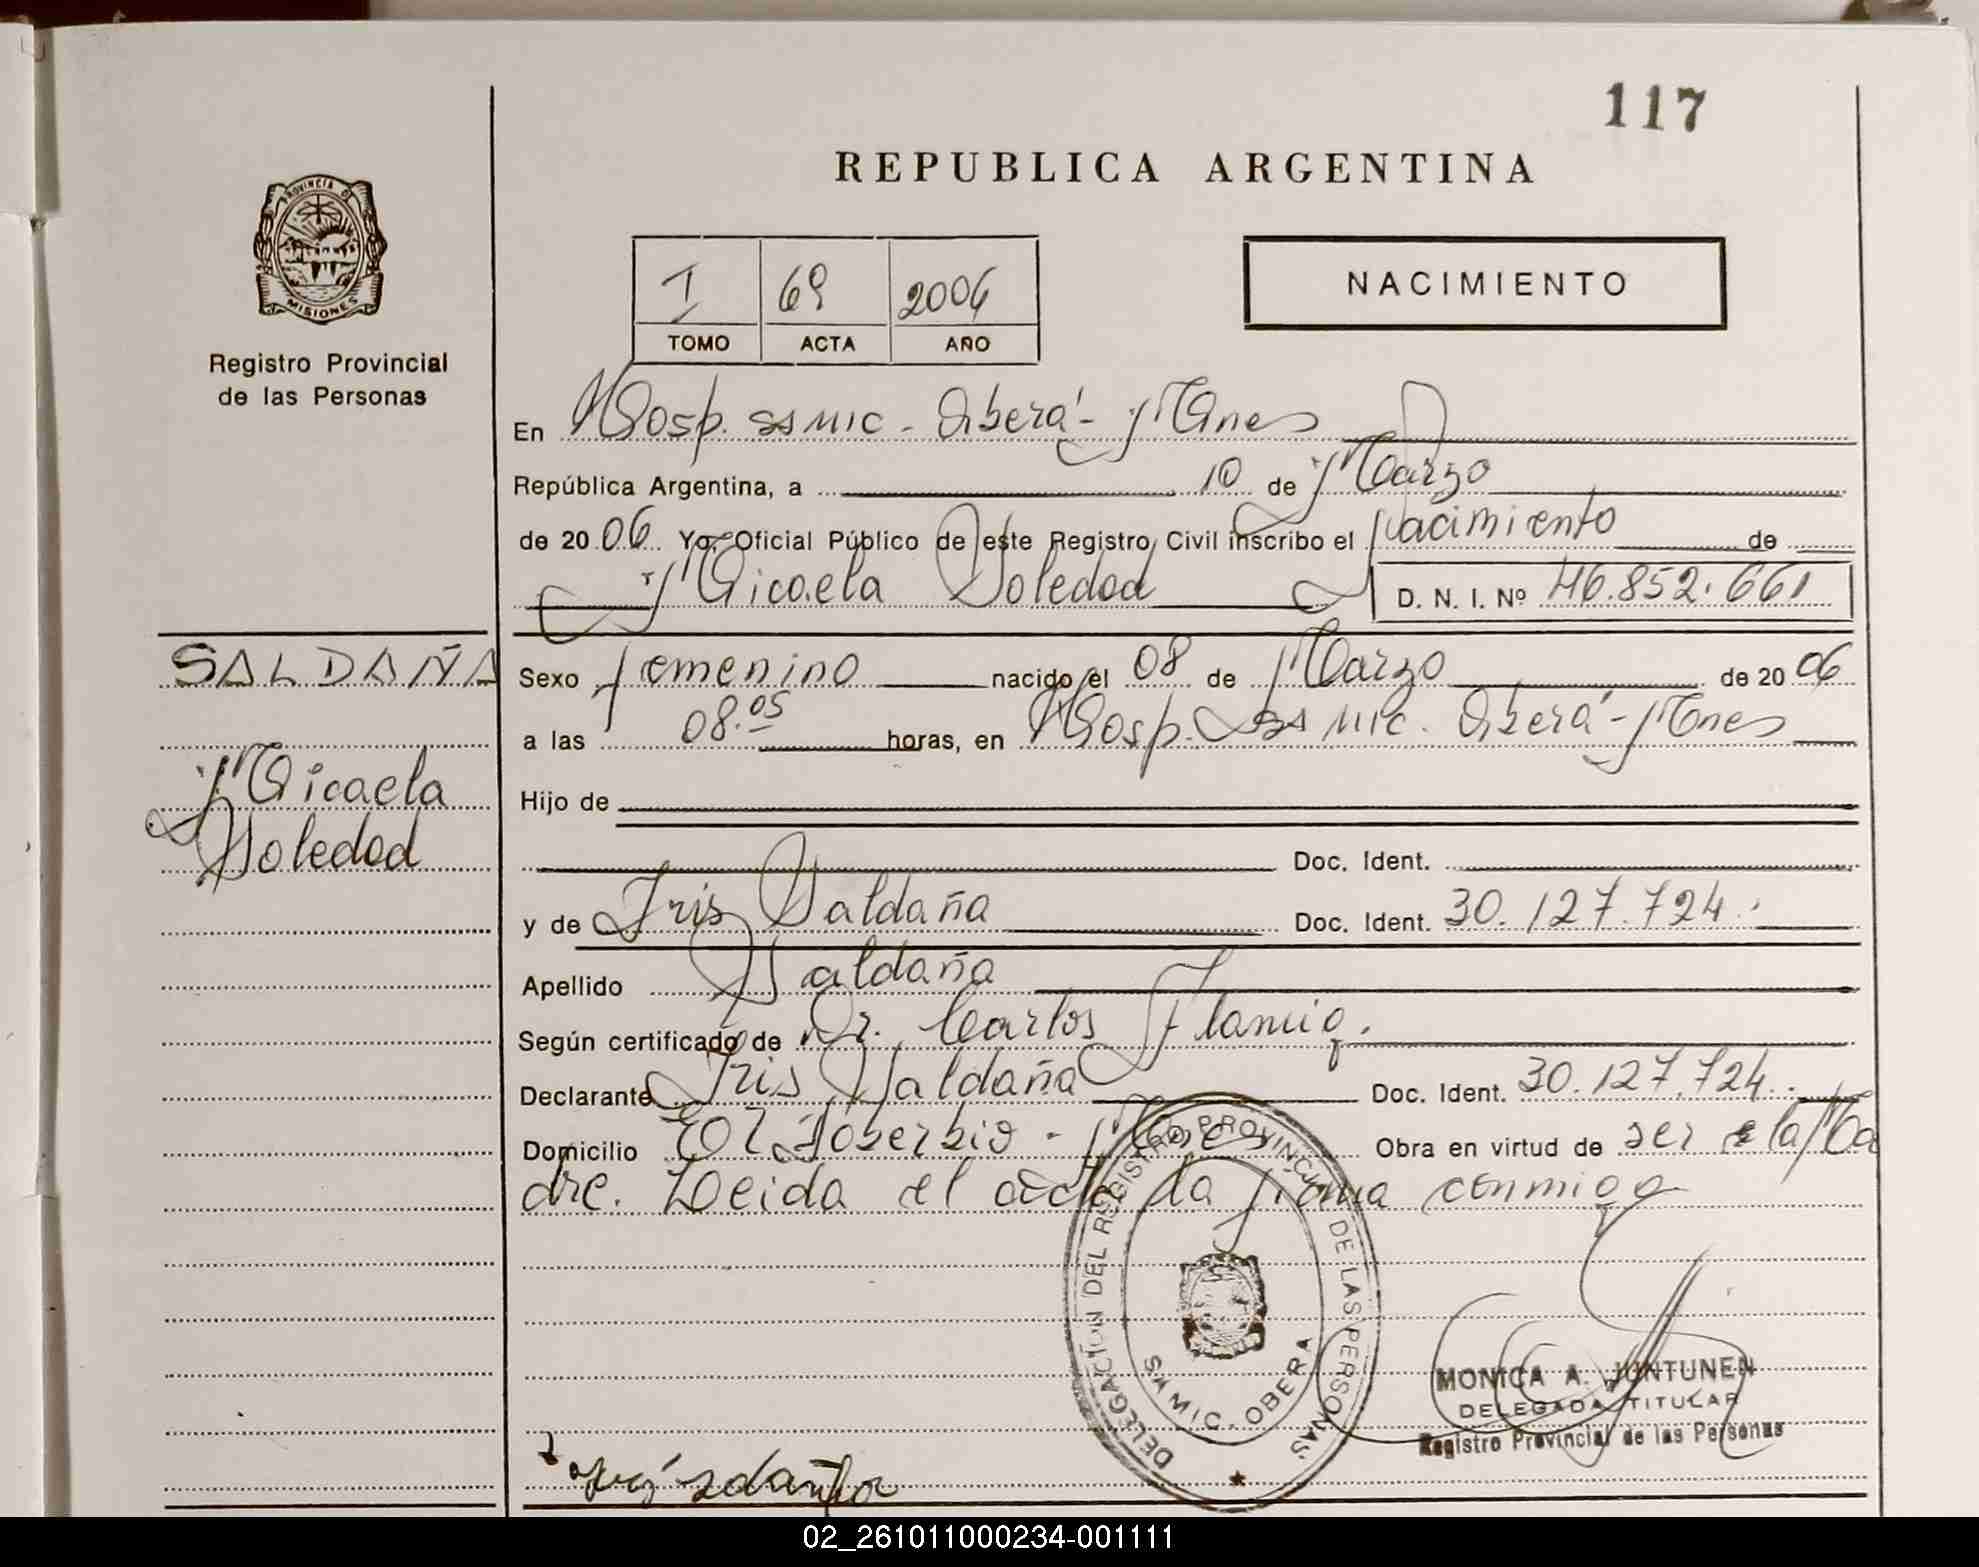 117
REPUBLICA ARGENTINA
PROVINCIA DE
MISIONES
Registro Provincial
de las Personas
I 69 2006
TOMO ACTA AÑO
NACIMIENTO
En Hosp. SAMIC - Oberá - Mnes
República Argentina, a 10 de Marzo
de 2006 Yo, Oficial Público de este Registro Civil inscribo el Nacimiento de
Micaela Soledad D. N. I. Nº 46.852.661
SALDAÑA
Micaela
Soledad
Sexo Femenino nacido el 08 de Marzo de 2006
a las 08.05 horas, en Hosp. SAMIC. Oberá - Mnes
Hijo de
Doc. Ident.
y de Iris Saldaña Doc. Ident. 30.127.724.
Apellido Saldaña
Según certificado de Dr. Carlos
Declarante Iris Saldaña Doc. Ident. 30.127.724.
Domicilio El Soberbio - Mnes Obra en virtud de ser la Ma
dre. Leida el acta la firma conmigo
DELEGACION DEL REGISTRO PROVINCIAL DE LAS PERSONAS
SAMIC - OBERA
MONICA A. JUNTUNEN
DELEGADA TITULAR
Registro Provincial de las Personas
02_261011000234-001111